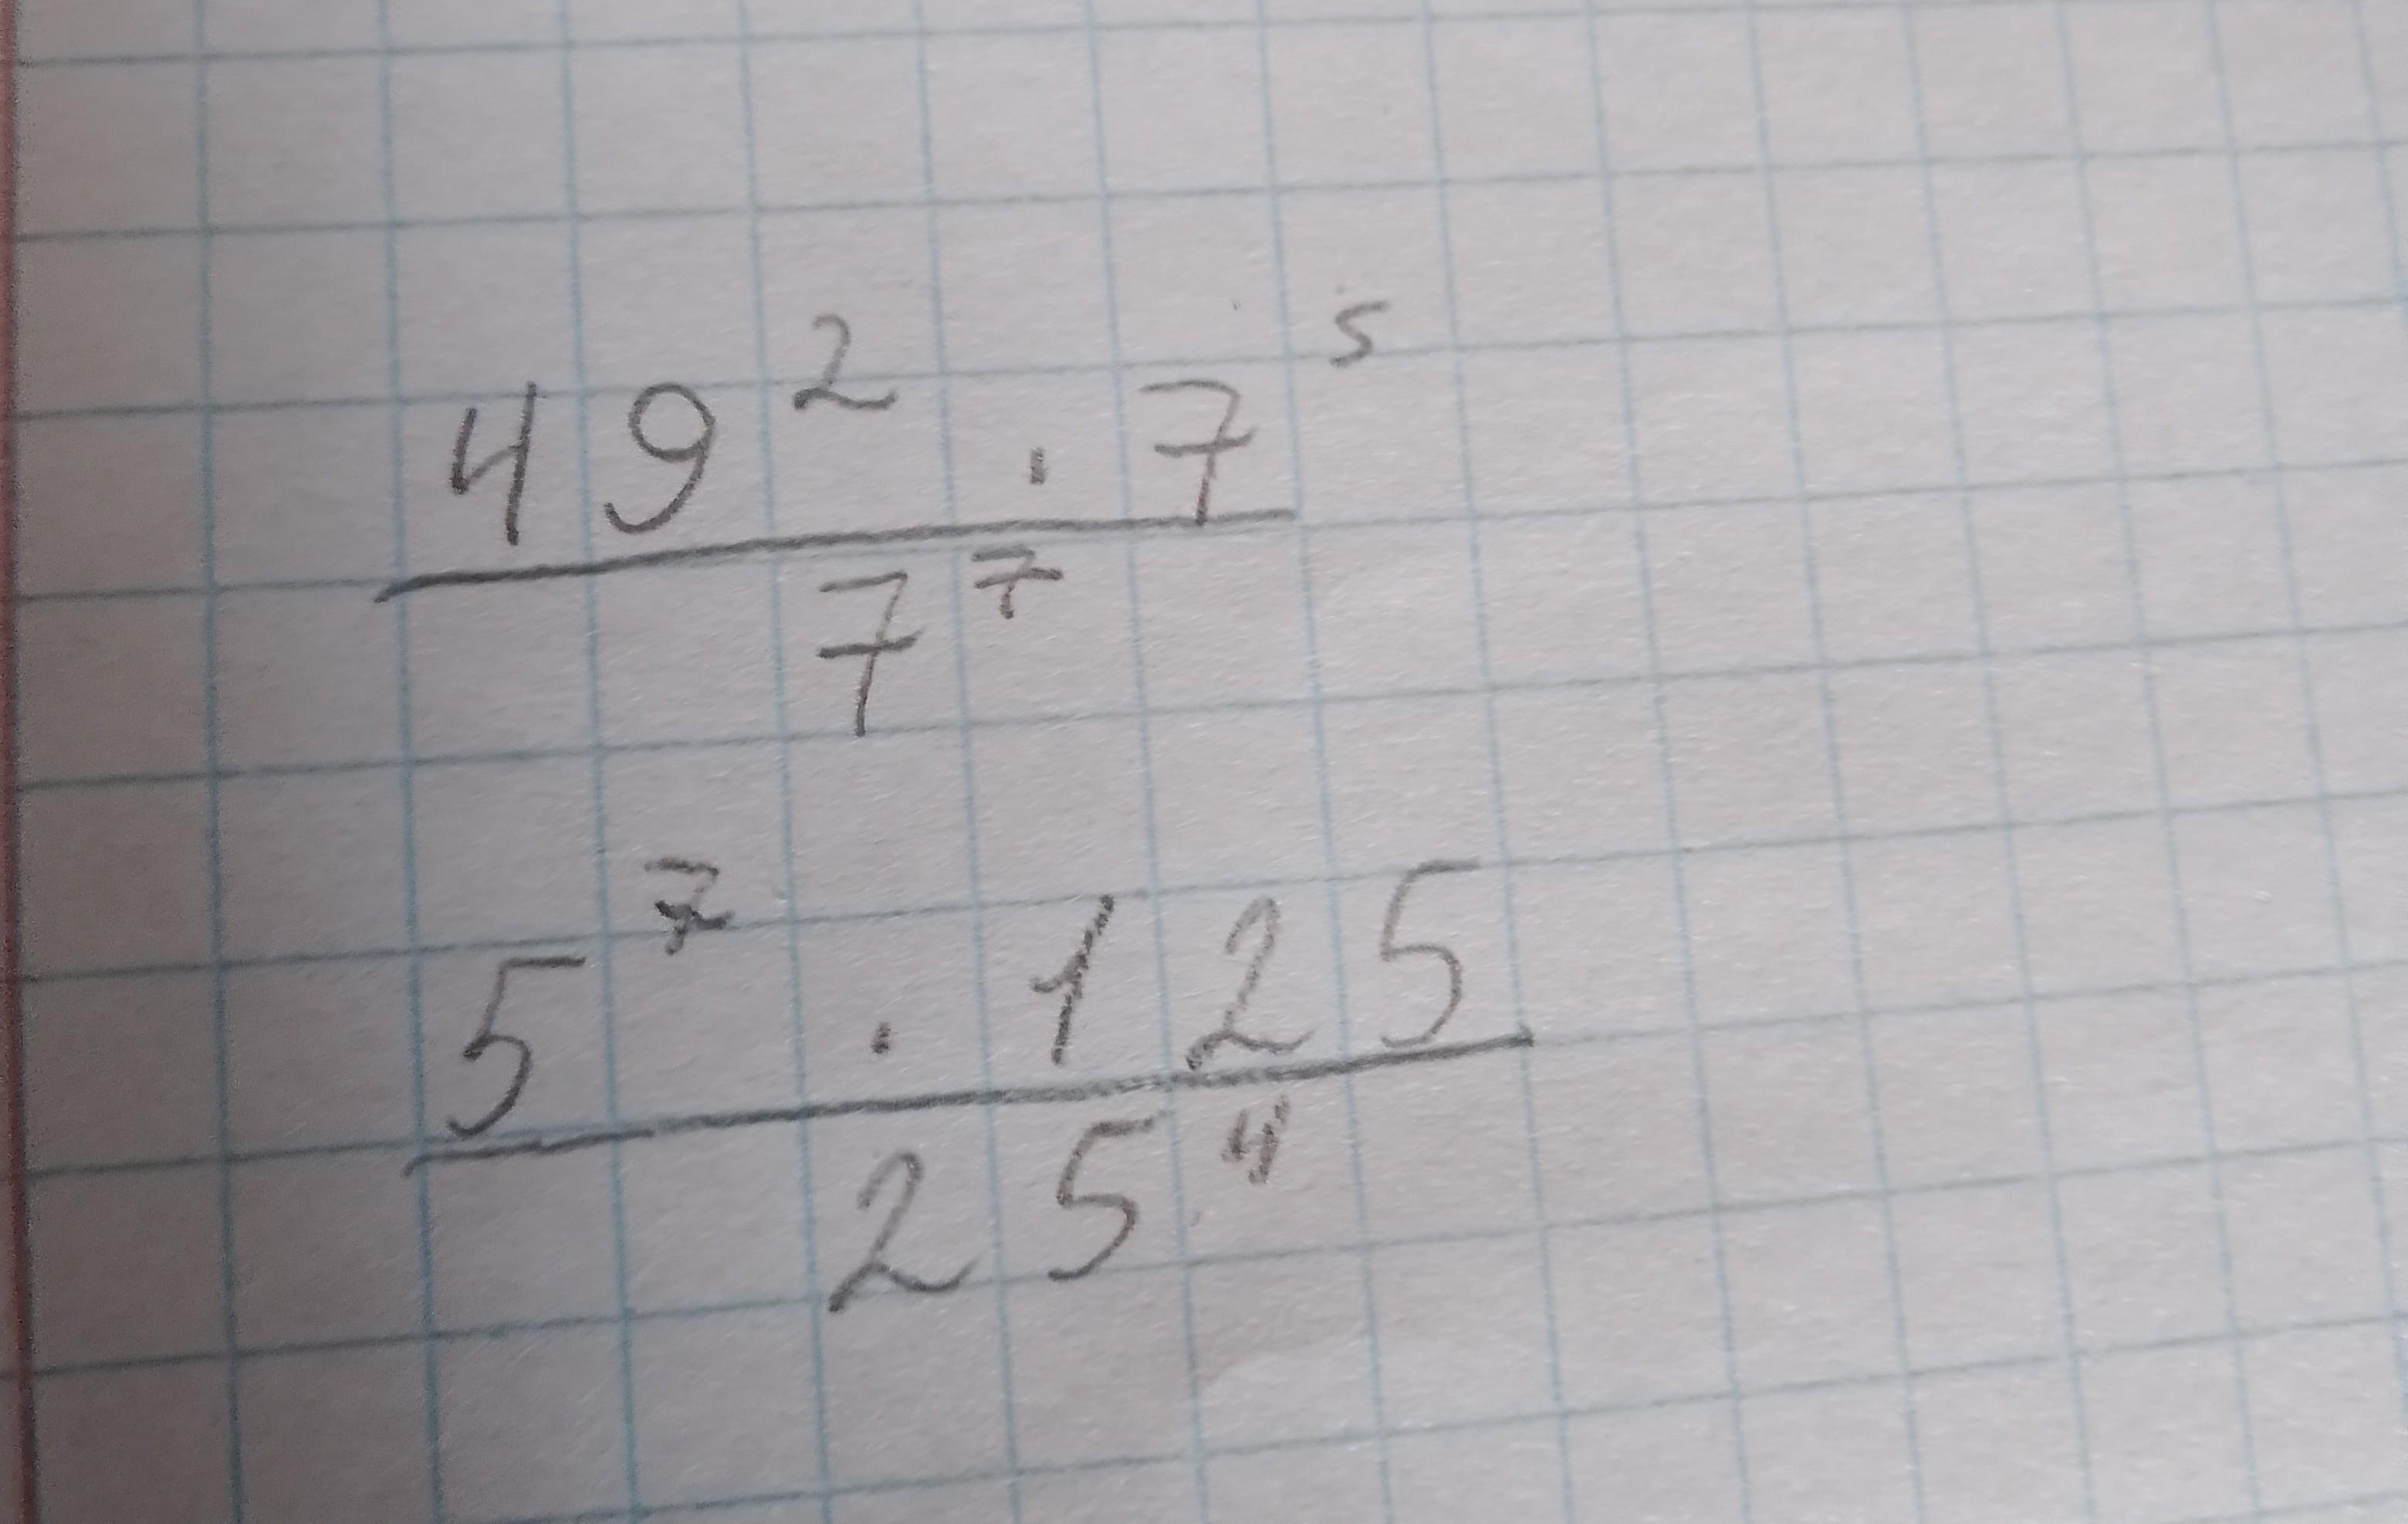 49² · 7⁵
7⁷
5⁷ · 125
25⁴